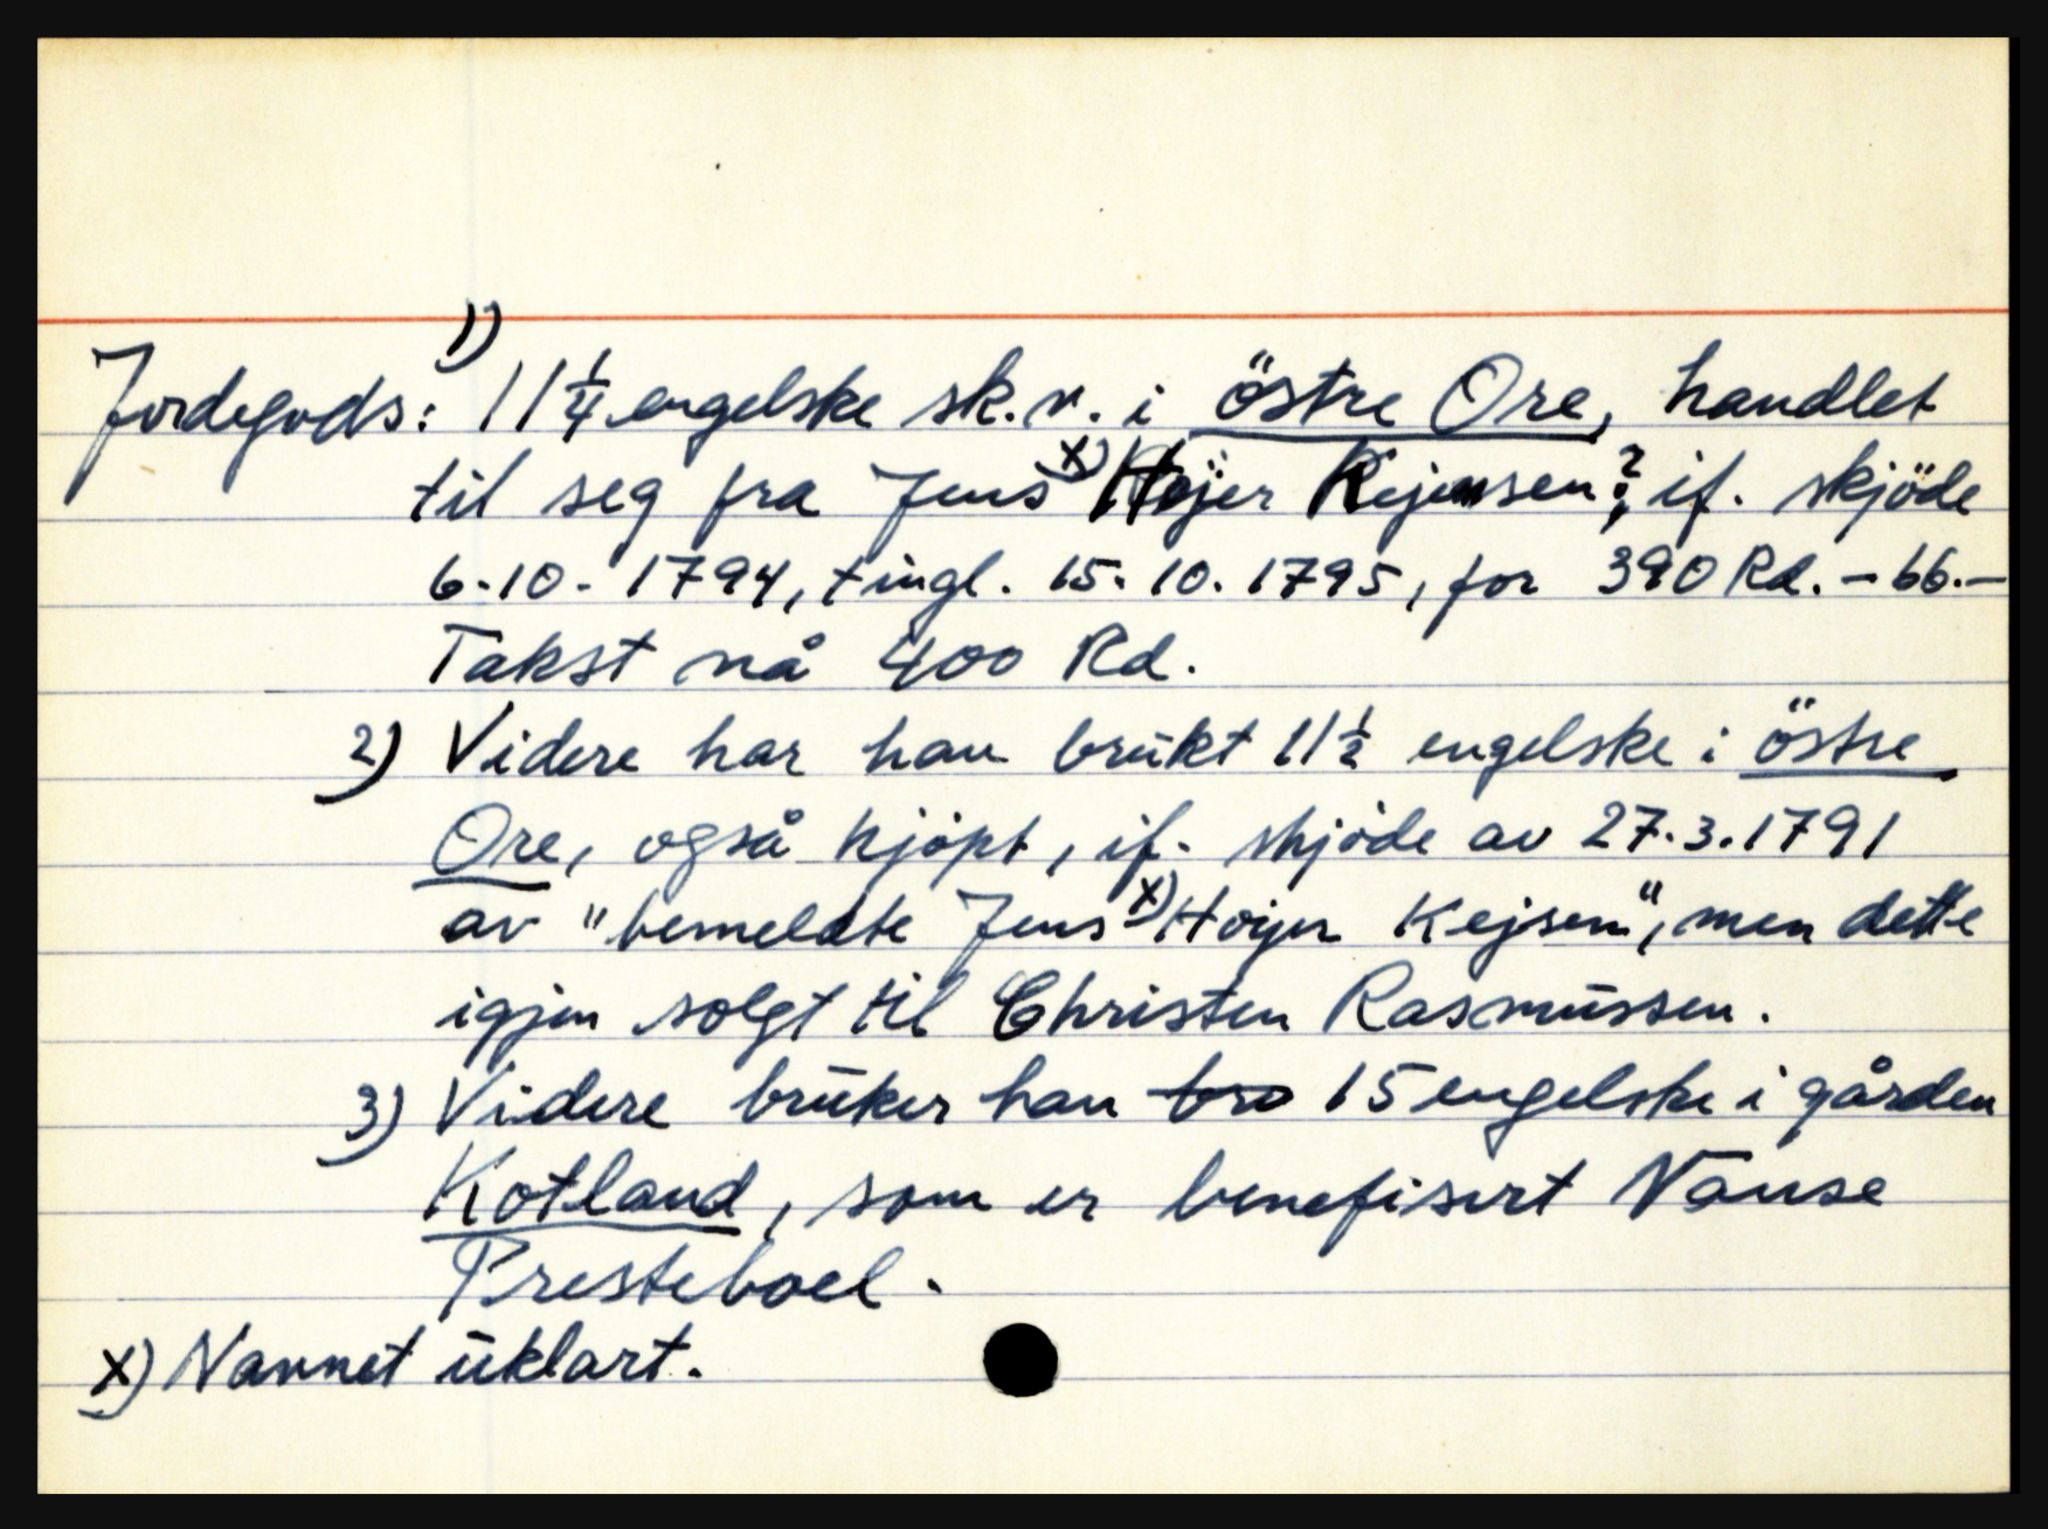 1)
Jordegods: 11 1/4 engelske sk.v. i östre Ore, handlet
til seg fra Jens x) Höjer Rejensen?, if. skjöde
6.10. 1794, tingl. 15. 10. 1795, for 390 Rd. - 66.-
Takst nå 400 Rd.
2) Videre har han brukt 11 1/2 engelske i östre
Ore, også kjöpt, if. skjöde av 27.3.1791
av "bemeldte Jens x) Höyer Kejsen", men dette
igjen solgt til Christen Rasmussen.
3) Videre bruker han bro 15 engelske i gården
Kotland, som er benefisert Vanse
Presteboel.
x) Navnet uklart.